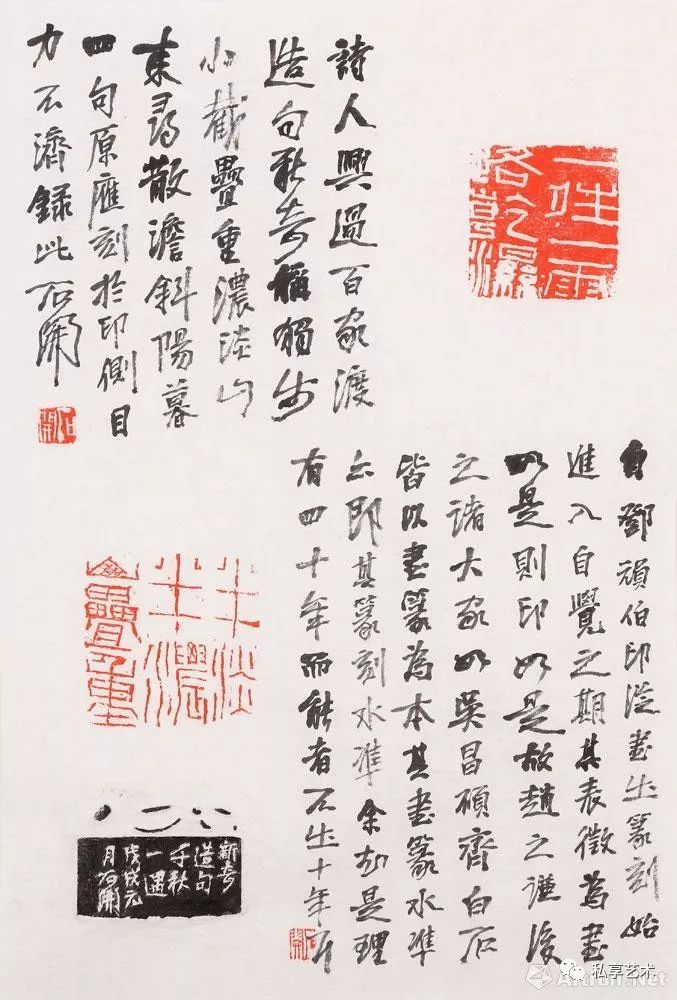 一晴一雨
路乾濕
詩人興過百家渡
造句新奇稱獨步
小截疊重濃淡山
來尋散澹斜陽暮
四句原應刻於印側目
力不濟錄此石開
石開
自鄧頑伯印從書出篆刻始
進入自覺之期其表徵為書
如是則印如是故趙之謙後
之諸大家如吳昌碩齊白石
皆以書篆為本其書篆水準
亦即其篆刻水準余知是理
有四十年而能者不出十年耳
石開
半淡
半濃
山疊重
新奇
造句
千秋
一遇
戊戌元
月石開
私享艺术
Artron.Net